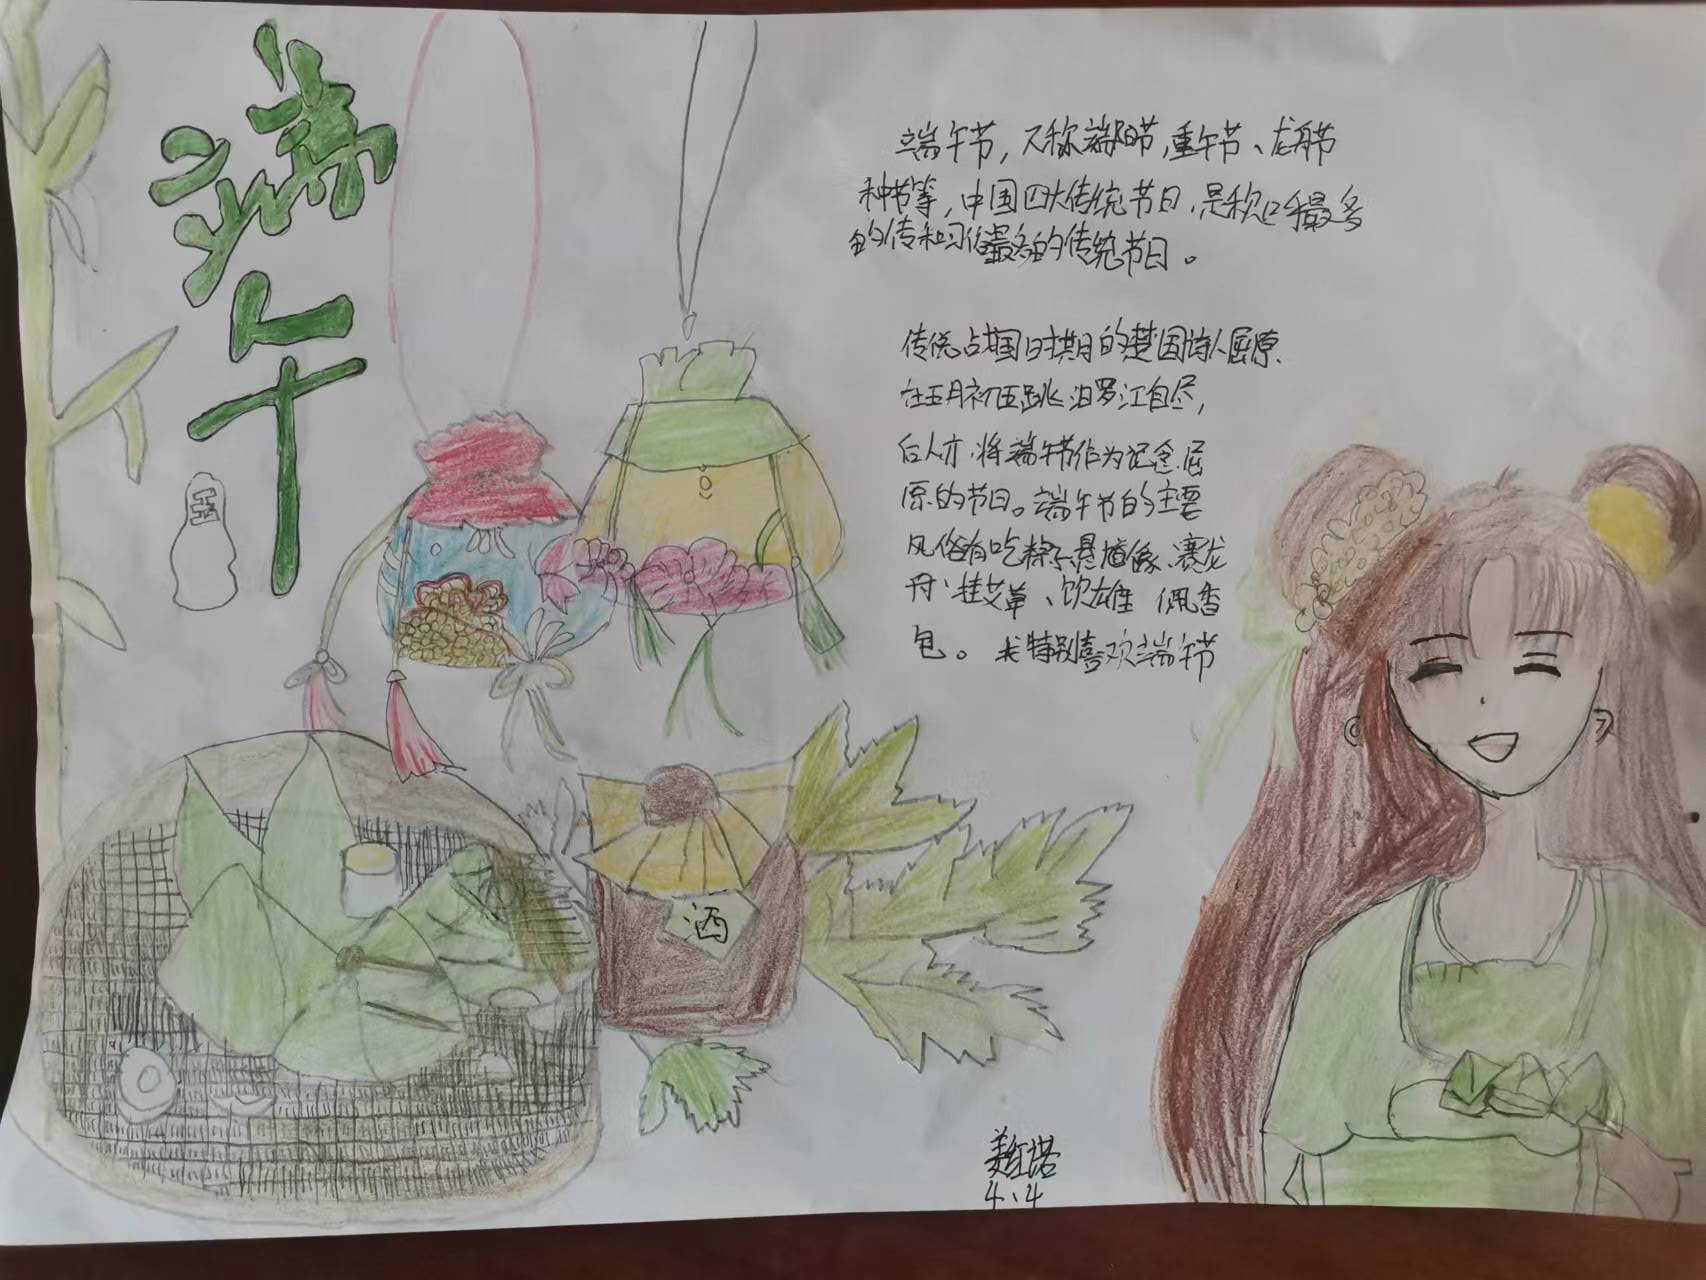 端午
端午节，又称端阳节，重午节、龙舟节
种节等，中国四大传统节日，是称口和最多
的传和习俗最多的传统节日。
传说战国时期的楚国诗人屈原
在五月初五跳汨罗江自尽，
后人亦将端午节作为纪念屈
原的节日。端午节的主要
风俗有吃粽子悬馗像、赛龙
舟、挂艾草、饮雄 佩香
包。我特别喜欢端午节
酒
4.4